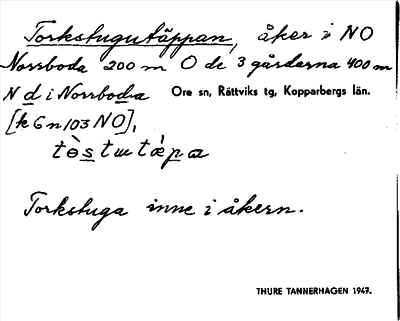 Torkstugutäppan, åker i NO
Norrboda 200 m O de 3 gårdarna 400 m
N d i Norrboda Ore sn, Rättviks tg, Kopparbergs län.
[k G n 103 NO],
Torkstuga inne i åkern.
THURE TANNERHAGEN 1947.